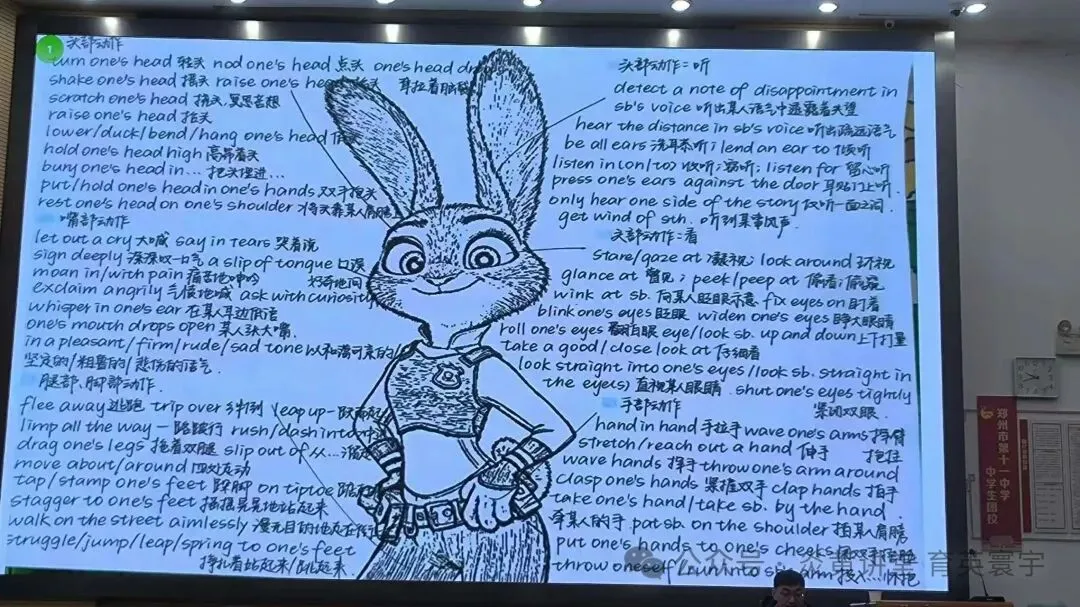 1
头部动作
turn one's head 转头 nod one's head 点头 one's head
shake one's head 摇头 raise one's 耳拉着脑袋
scratch one's head 挠头,冥思苦想
raise one's head 抬头
lower/duck/bend/hang one's head
hold one's head high 高昂着头
bury one's head in... 把头埋进...
put/hold one's head in one's hands 双手抱头
rest one's head on one's shoulder 将头靠某人肩膀上
嘴部动作
let out a cry 大喊 say in tears 哭着说
sign deeply 深深叹一口气 a slip of tongue 口误
moan in/with pain 痛苦地呻吟 好奇地问
exclaim angrily 气愤地喊 ask with curiosity
whisper in one's ear 在某人耳边低语
one's mouth drops open 某人张大嘴.
in a pleasant/firm/rude/sad tone 以和蔼可亲的/
坚定的/粗鲁的/悲伤的语气.
腿部、脚部动作.
flee away 逃跑 trip over 绊倒 leap up
limp all the way 一路跛行 rush/dash into
drag one's legs 拖着双腿 slip out of 从...
move about/around 四处走动
tap/stamp one's feet 跺脚 on tiptoe
stagger to one's feet 摇摇晃晃地站起来
walk on the street aimlessly 漫无目的地走在街
struggle/jump/leap/spring to one's feet
挣扎着站起来/跳起来.
头部动作:听
detect a note of disappointment in
sb's voice 听出某人语气中透露着失望
hear the distance in sb's voice 听出疏远语气
be all ears 洗耳恭听; lend an ear to 倾听
listen in (on/to) 收听;窃听; listen for 留心听
press one's ears against the door 耳贴门上听.
only hear one side of the story 仅听一面之词.
get wind of sth. 听到某事风声.
头部动作:看
stare/gaze at 凝视; look around 环视
glance at 瞥见; peek/peep at 偷看;偷窥
wink at sb. 向某人眨眼示意 fix eyes on 盯着
blink one's eyes 眨眼 widen one's eyes 睁大眼睛
roll one's eyes 翻白眼 eye/look sb. up and down 上下打量
take a good/close look at 仔细看
look straight into one's eyes/look sb. straight in
the eye(s) 直视某人眼睛. shut one's eyes tightly
紧闭双眼.
手部动作
hand in hand 手拉手 wave one's arms 挥臂
stretch/reach out a hand 伸手 抱住
wave hands 挥手 throw one's arm around
clasp one's hands 紧握双手 clap hands 拍手
take one's hand/take sb. by the hand
牵某人的手 pat sb. on the shoulder 拍某人肩膀
put one's hands to one's cheeks
throw oneself/run into
公众号 育英寰宇
郑州市第十一中学
中学生团校